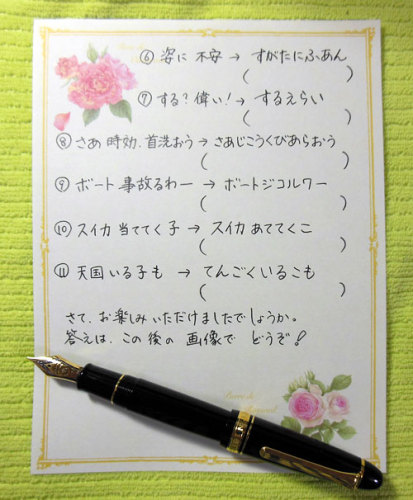 ⑥ 姿に 不安 → すがたにふあん
( )
⑦ する?偉い! → するえらい
( )
⑧ さあ 時効、首洗おう → さあじこうくびあらおう
( )
⑨ ボート 事故るわー → ボートジコルワー
( )
⑩ スイカ 当ててく 子 → スイカ あててくこ
( )
⑪ 天国 いる 子も → てんごくいるこも
( )
さて、お楽しみいただけましたでしょうか。
答えは、この後の 画像で どうぞ!